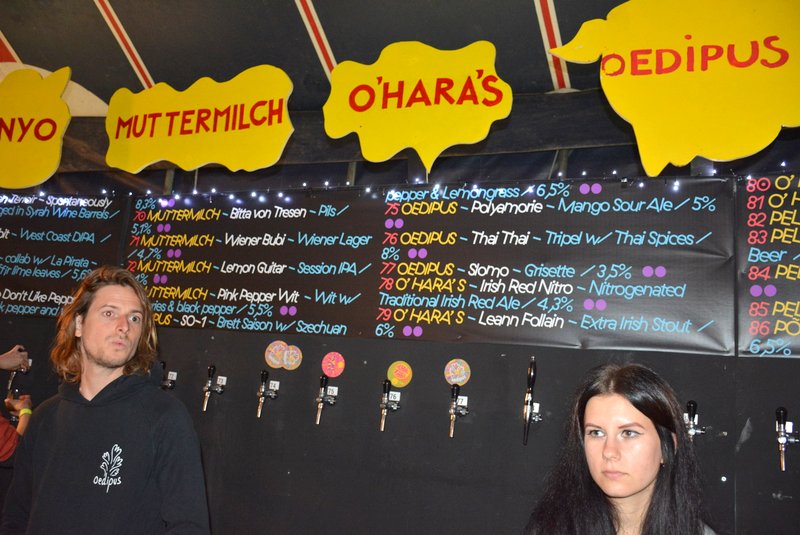 NYO
MUTTERMILCH
O'HARA'S
OEDIPUS
Terroir - Spontaneously
in Syrah Wine Barrels
- West Coast DIPA
collab w/ La Pirata
lime leaves / 5,6%
Don't Like Pepper
pepper and
8,3%
70 MUTTERMILCH - Bitta von Tresen - Pils /
5,1%
71 MUTTERMILCH - Wiener Bubi - Wiener Lager
/ 4,7%
72 MUTTERMILCH - Lemon Guitar - Session IPA /
MUTTERMILCH - Pink Pepper Wit - Wit w/
& black pepper / 5,5%
PUS - SO-1 - Brett Saison w/ Szechuan
pepper & Lemongrass / 6,5%
75 OEDIPUS - Polyamorie - Mango Sour Ale / 5%
76 OEDIPUS - Thai Thai - Tripel w/ Thai Spices /
8%
77 OEDIPUS - Slomo - Grisette / 3,5%
78 O'HARA'S - Irish Red Nitro - Nitrogenated
Traditional Irish Red Ale / 4,3%
79 O'HARA'S - Leann Follain - Extra Irish Stout /
6%
80 O'H
81 O'H
82 PEL
83 PEL
Beer /
84 PEL
85 PEL
86 PÕ
6,5%
74
75
76
77
oedipus